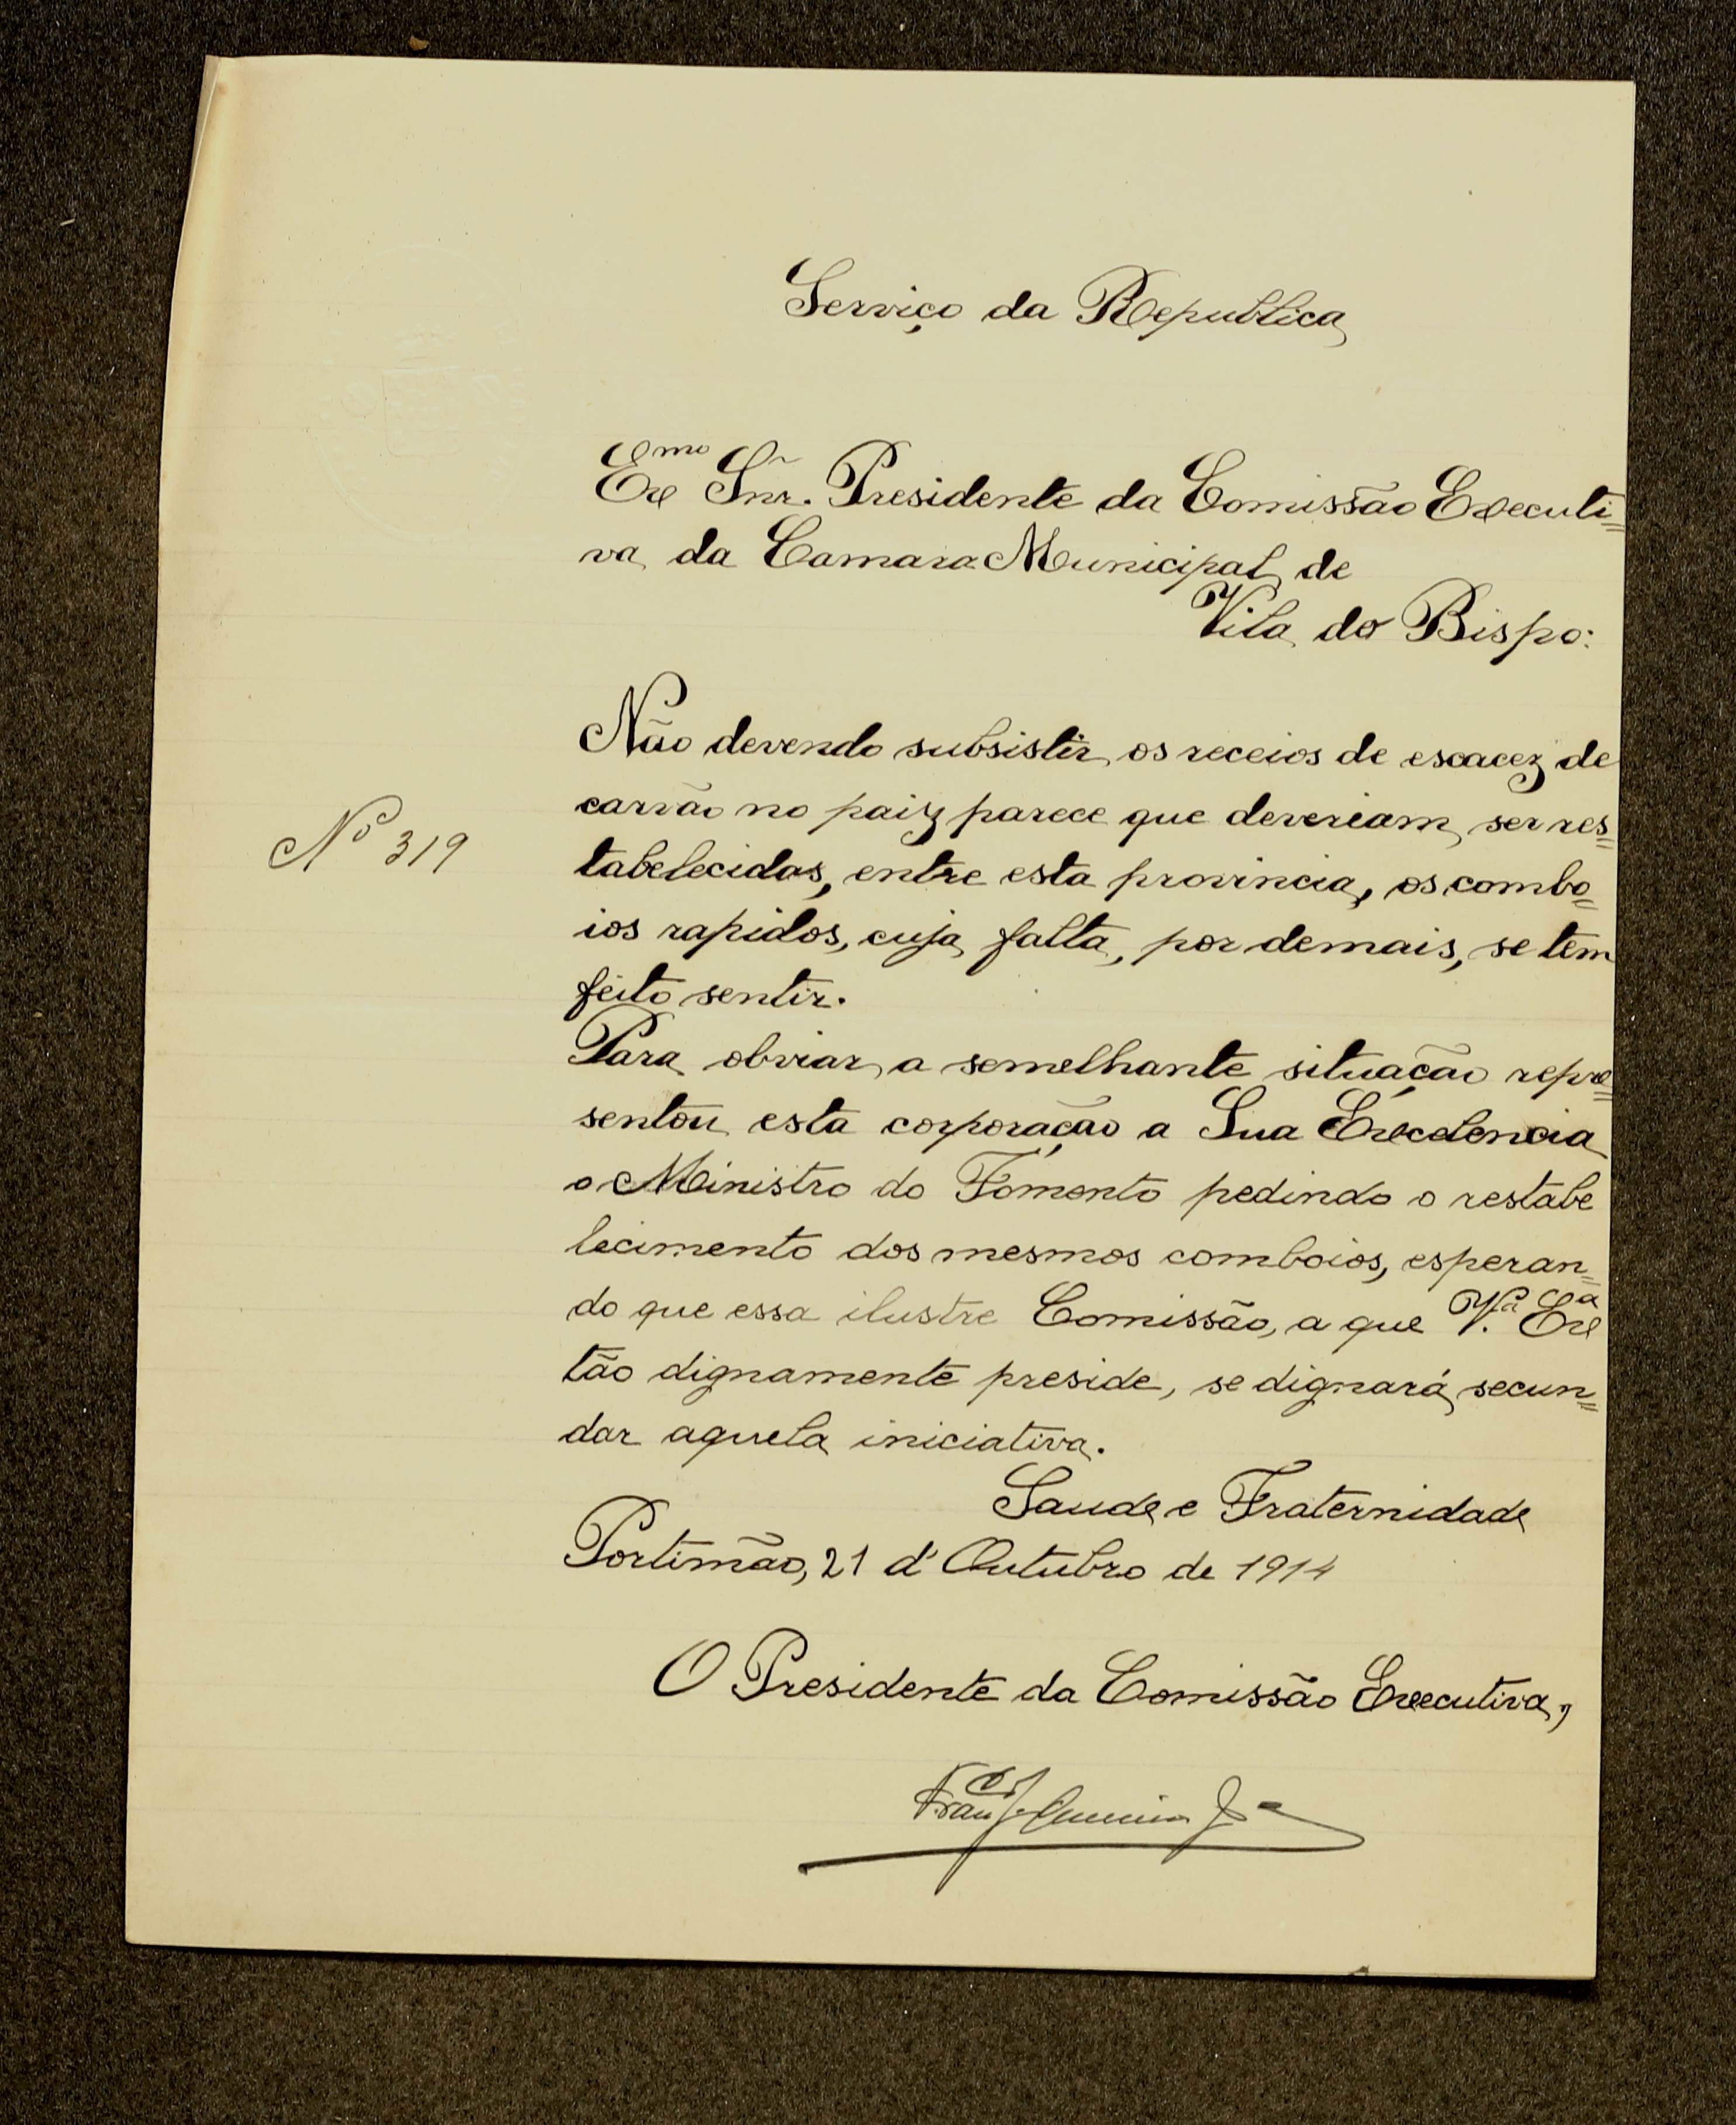 Serviço da Republica
Exmo Snr. Presidente da Comissão Executi=
va da Camara Municipal de
Vila do Bispo:
Não devendo subsistir os receios de escacez de
carvão no paiz parece que devereiam ser res=
Nº 319
tabelecidos, entre esta provincia, os combo=
ios rapidos, cuja falta, por demais, se tem
feito sentir.
Para obviar a semelhante situação repre=
sentou esta corporação a Sua Excelencia
o Ministro do Fomento pedindo o restabe
lecimento dos mesmos comboios, esperan=
do que essa ilustre Comissão, a que V.ª Exª
tão dignamente preside, se dignará secun=
dar aquela iniciativa.
Saude e Fraternidade
Portimão, 21 d'Outubro de 1914
O Presidente da Comissão Executiva,